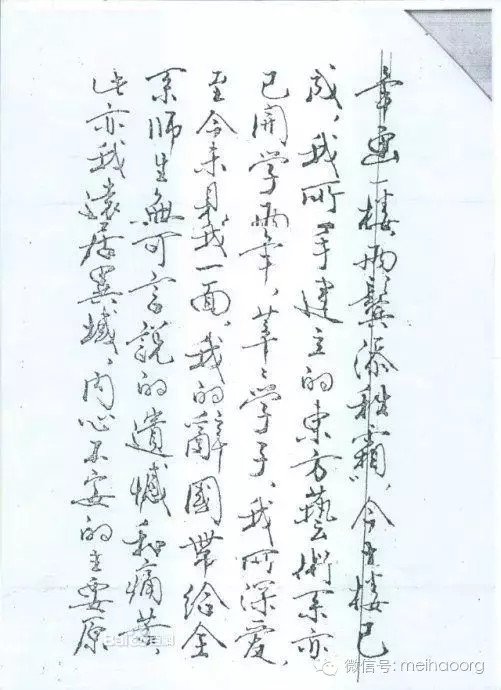 画一楼，两鬓添秋霜”，今楼已
成，我所一手建立的东方藝術系亦
已開学两年，莘莘学子，我所深爱，
至今未见我一面，我的辭國带给全
系师生無可言說的遺憾和痛苦，
此亦我遠居異域，内心不安的主要原
微信号: meihaoorg